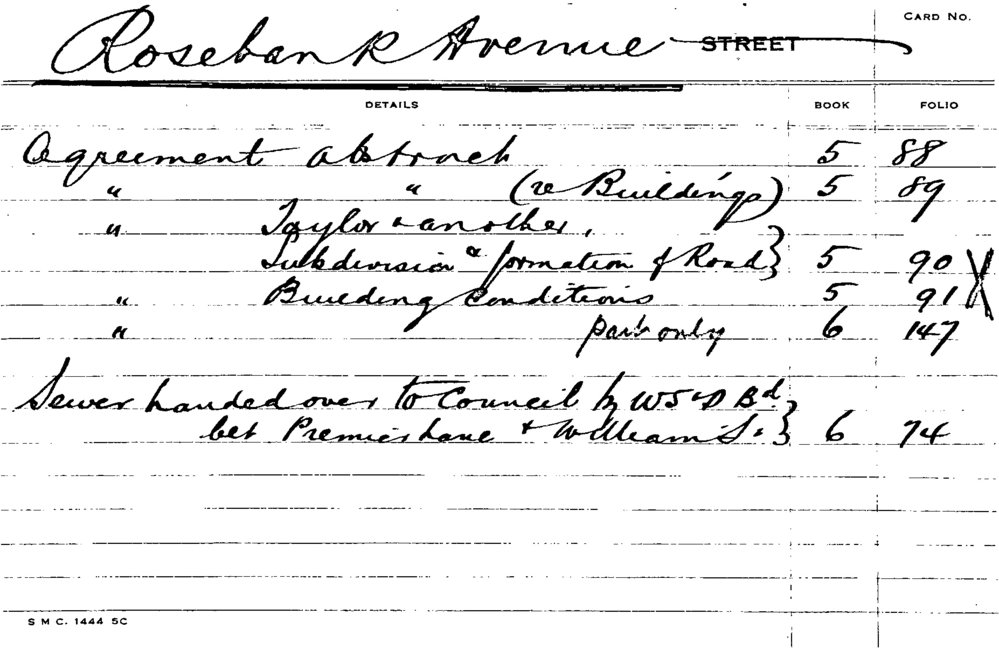 CARD NO.
Rosebank Avenue STREET
DETAILS BOOK FOLIO
Agreement abstract 5 88
" " (re Buildings) 5 89
" Taylor & another,
Subdivision & formation of Road} 5 90 X
" Building Conditions 5 91
" part only 6 147
Sewer handed over to Council by WS&D Bd.
bet Premier Lane & William St} 6 74
S M C. 1444 5C